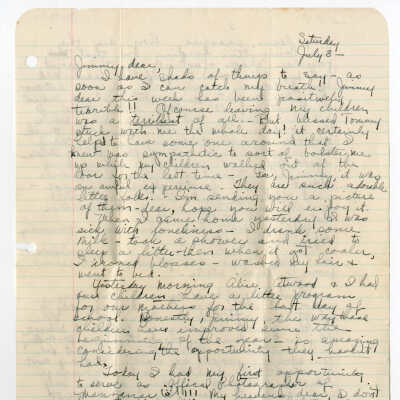 Saturday
July 3 –
Jimmy dear,
I have shads of things to say – as
soon as I can catch my breath! Jimmy
dear this week has been positively
terrible!! Of course leaving my children
was a terriblest of all. – But blessed Tommy
stuck with me the whole day! It certainly
helps to have some one around that I
knew was sympathetic to sort of bolster me
up while my children walked out of the
door for the last time – Gee, Jimmy, it was
an awful experience. They are such adorable
little folks. I'm sending you a picture
of them – dear, hope you will enjoy it.
When I came home yesterday I was
sick with loneliness – I drank some
milk – took a shower and tried to
sleep a little – then when it got cooler,
I ironed blouses – washed my hair &
went to bed.
Yesterday morning Alice, & I had
our children have a little program
for our mothers for the last day of
school. Honestly, Jimmy, the way those
children have improved since the
beginning of the year – is amazing
considering the opportunity they hadn't
had.
Today I had my first opportunity
to serve as official photographer of
Manzanar !!!! My heavens, dear, I don't